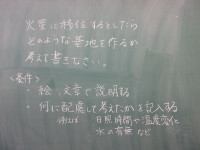 火星に移住するとしたら
どのような基地を作るか
考えて書きなさい。
<条件>
・絵、文章で説明する
・何に配慮して考えたかを記入する
例えば 日照時間や温度変化
水の有無 など